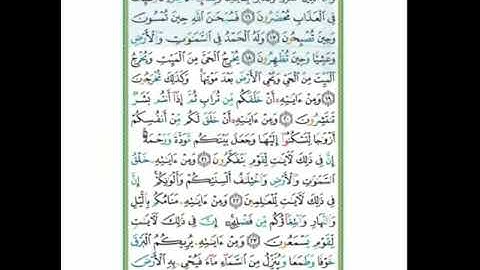 فِى ٱلْعَذَابِ مُحْضَرُونَ ١٦ فَسُبْحَـٰنَ ٱللَّهِ حِينَ تُمْسُونَ
وَحِينَ تُصْبِحُونَ ١٧ وَلَهُ ٱلْحَمْدُ فِى ٱلسَّمَـٰوَٰتِ وَٱلْأَرْضِ
وَعَشِيًّا وَحِينَ تُظْهِرُونَ ١٨ يُخْرِجُ ٱلْحَىَّ مِنَ ٱلْمَيِّتِ وَيُخْرِجُ
ٱلْمَيِّتَ مِنَ ٱلْحَىِّ وَيُحْىِ ٱلْأَرْضَ بَعْدَ مَوْتِهَا وَكَذَٰلِكَ تُخْرَجُونَ
١٩ وَمِنْ ءَايَـٰتِهِۦٓ أَنْ خَلَقَكُم مِّن تُرَابٍ ثُمَّ إِذَآ أَنتُم بَشَرٌ
تَنتَشِرُونَ ٢٠ وَمِنْ ءَايَـٰتِهِۦٓ أَنْ خَلَقَ لَكُم مِّنْ أَنفُسِكُمْ
أَزْوَٰجًا لِّتَسْكُنُوٓا۟ إِلَيْهَا وَجَعَلَ بَيْنَكُم مَّوَدَّةً وَرَحْمَةً
إِنَّ فِى ذَٰلِكَ لَـَٔايَـٰتٍ لِّقَوْمٍ يَتَفَكَّرُونَ ٢١ وَمِنْ ءَايَـٰتِهِۦ خَلْقُ
ٱلسَّمَـٰوَٰتِ وَٱلْأَرْضِ وَٱخْتِلَـٰفُ أَلْسِنَتِكُمْ وَأَلْوَٰنِكُمْ إِنَّ
فِى ذَٰلِكَ لَـَٔايَـٰتٍ لِّلْعَـٰلِمِينَ ٢٢ وَمِنْ ءَايَـٰتِهِۦ مَنَامُكُم بِٱلَّيْلِ
وَٱلنَّهَارِ وَٱبْتِغَآؤُكُم مِّن فَضْلِهِۦٓ إِنَّ فِى ذَٰلِكَ لَـَٔايَـٰتٍ
لِّقَوْمٍ يَسْمَعُونَ ٢٣ وَمِنْ ءَايَـٰتِهِۦ يُرِيكُمُ ٱلْبَرْقَ
خَوْفًا وَطَمَعًا وَيُنَزِّلُ مِنَ ٱلسَّمَآءِ مَآءً فَيُحْىِۦ بِهِ ٱلْأَرْضَ